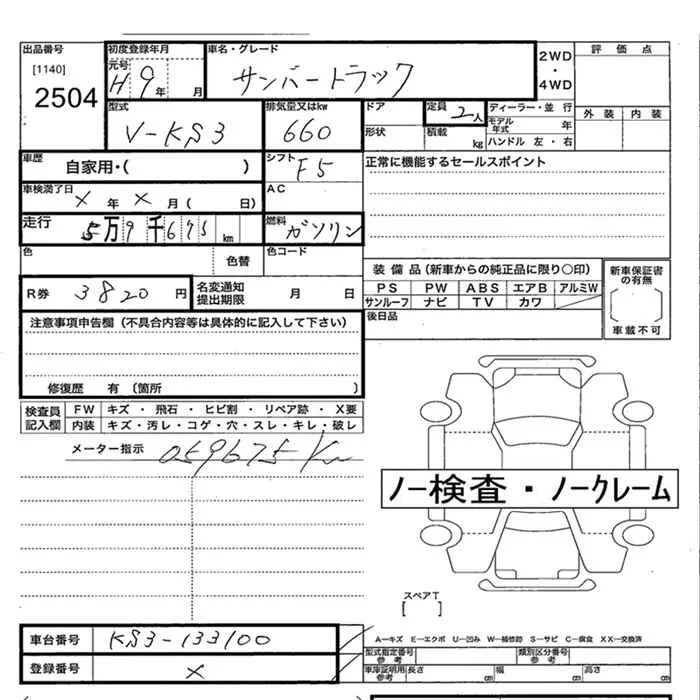 出品番号 初度登録年月 車名・グレード 2WD・4WD 評価点
[1140] 元号 H9年 月 サンバートラック
2504 外装 内装
型式 排気量又はkw ドア 定員 2人 ディーラー・並行
V-KS3 660 形状 積載 kg モデル年式 年
ハンドル 左・右
車歴 自家用・( ) シフト F5 正常に機能するセールスポイント
車検満了日 × 年 × 月( 日) AC
走行 5万9千675km 燃料 ガソリン
色 色替 色コード
装備品(新車からの純正品に限り○印) 新車保証書の有無
R券 3820円 名変通知提出期限 月 日
PS PW ABS エアB アルミW
サンルーフ ナビ TV カワ
車載不可
後日品
注意事項申告欄(不具合内容等は具体的に記入して下さい)
修復歴 有(箇所 )
検査員記入欄 FW キズ・飛石・ヒビ割・リペア跡・X要
内装 キズ・汚レ・コゲ・穴・スレ・キレ・破レ
メーター指示 059675km
ノー検査・ノークレーム
スペアT
[ ]
車台番号 KS3-133100
登録番号 ×
A-キズ E-エクボ U-凹み W-補修跡 S-サビ C-腐食 XX-交換済
型式指定番号 参考 類別区分番号 参考
車庫証明用 参考 長さ cm 幅 cm 高さ cm